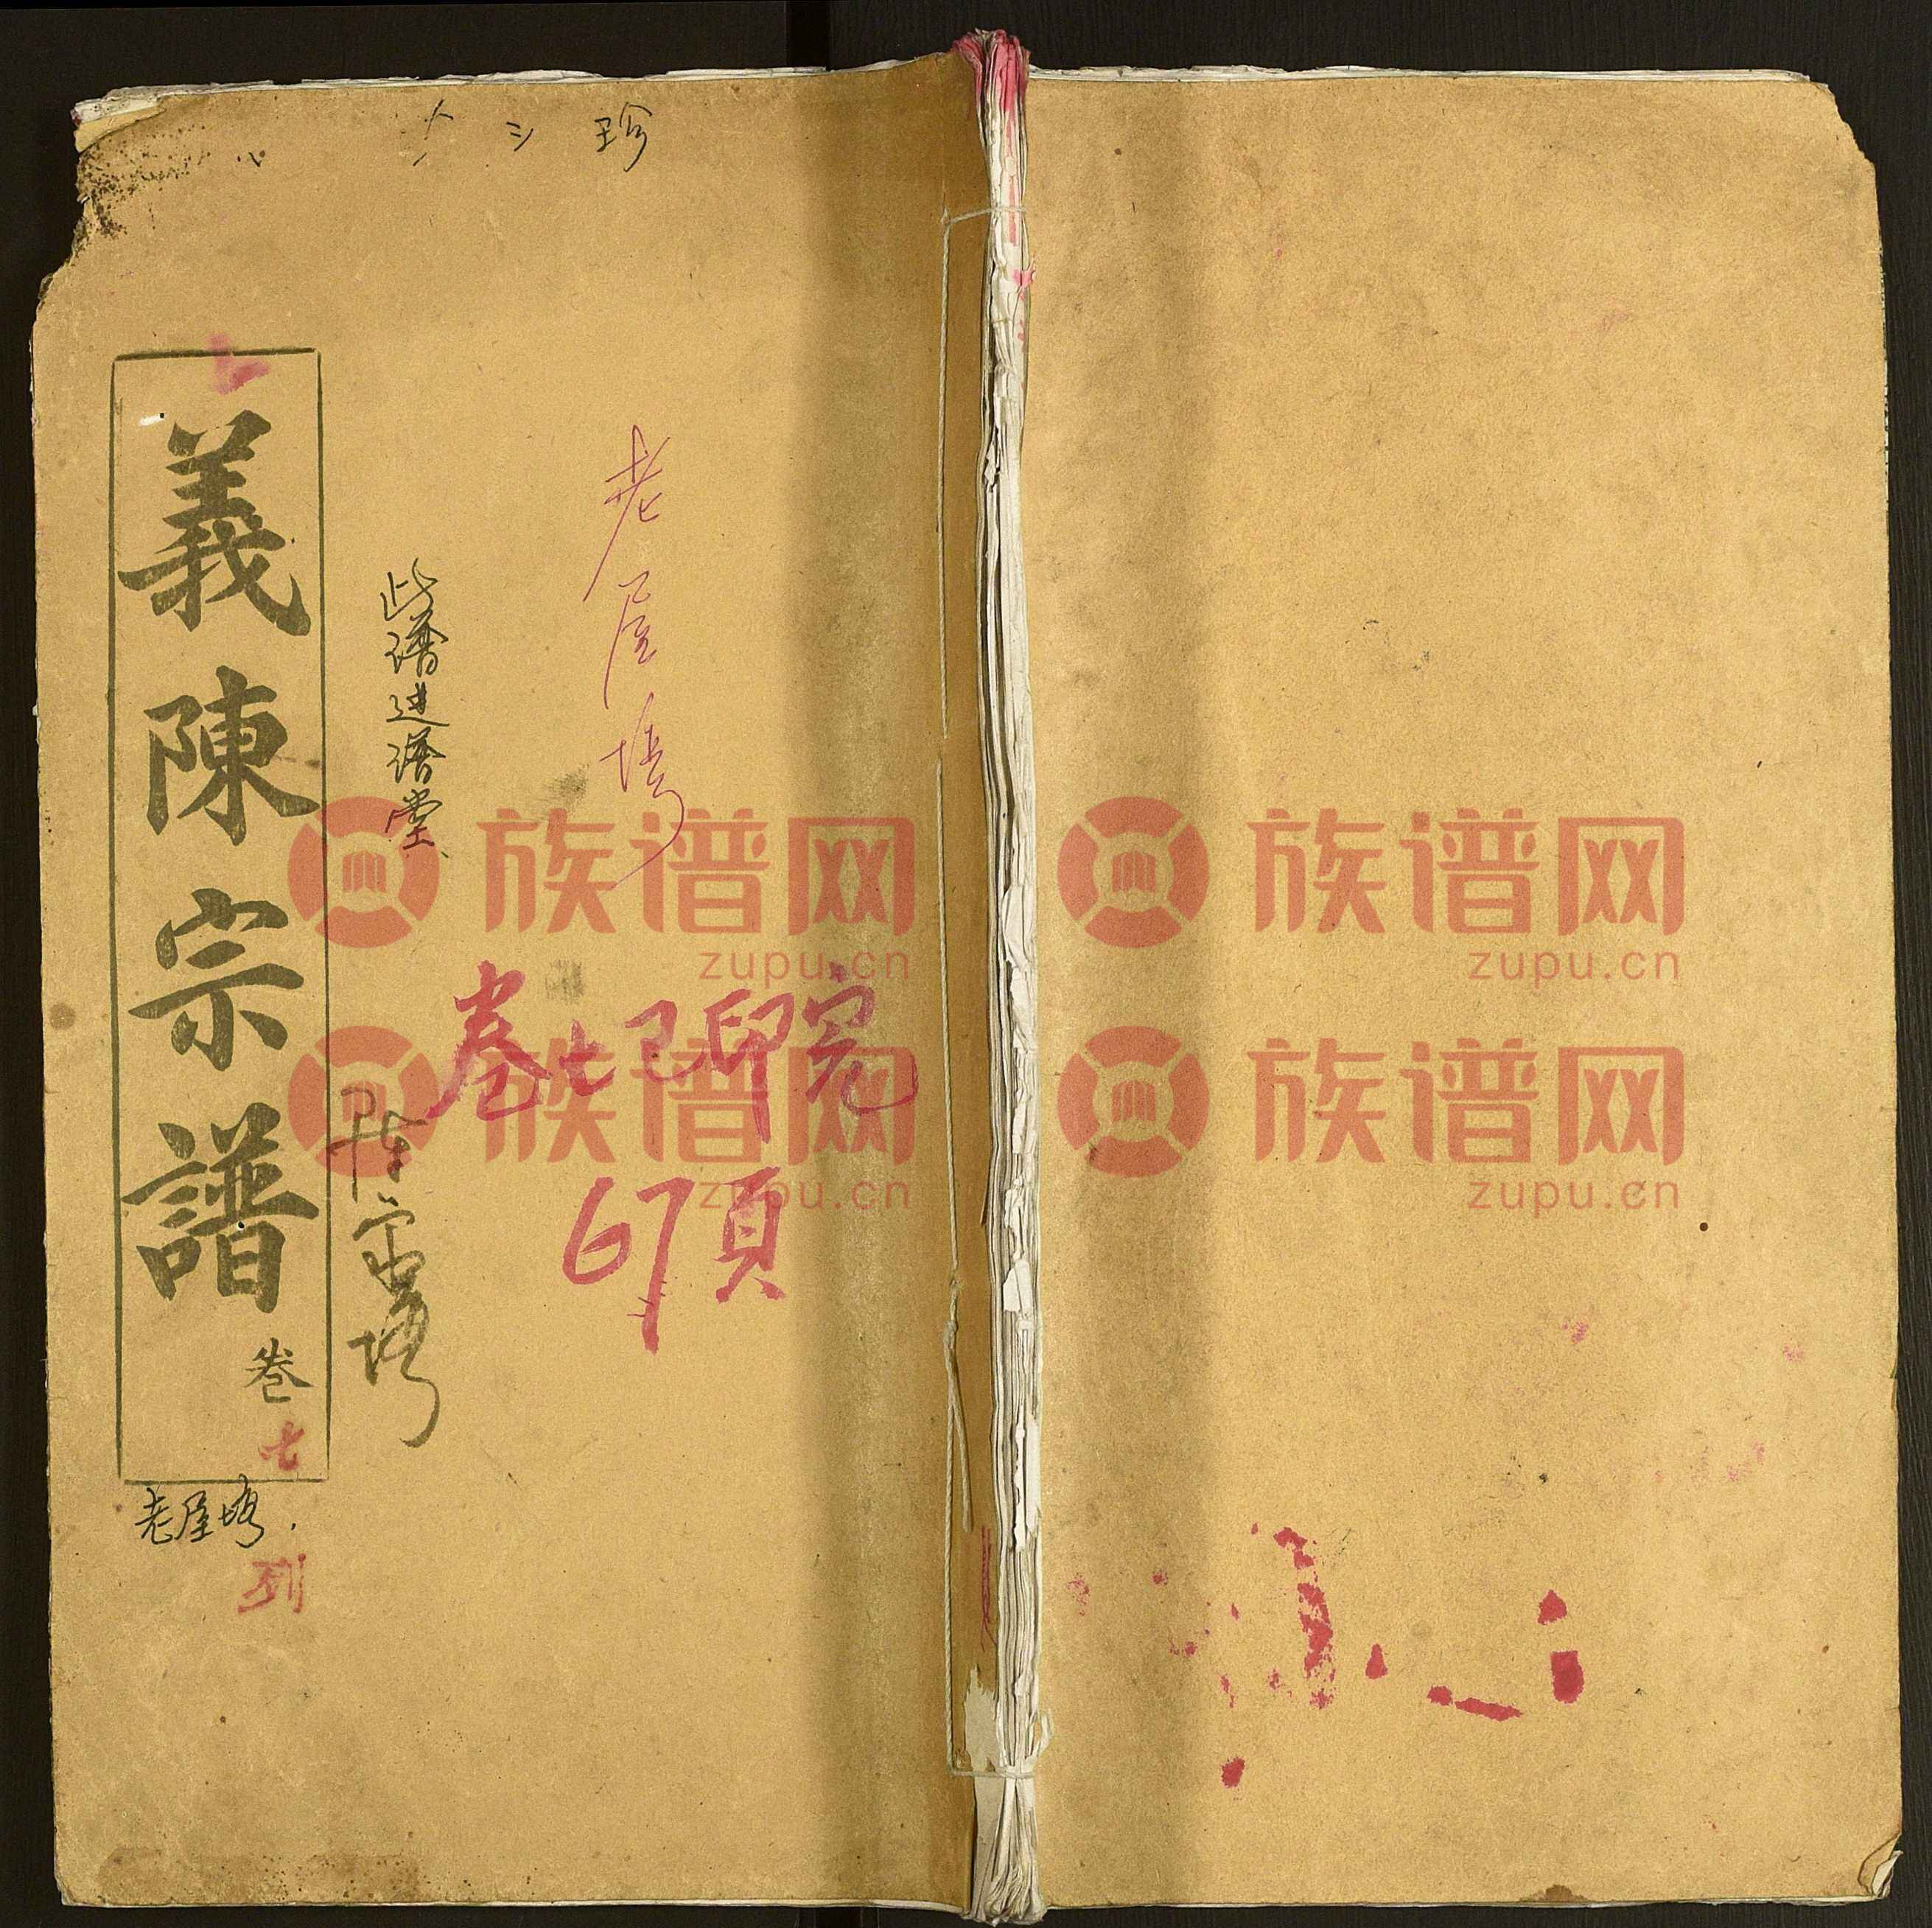 珍
義陳宗譜
卷七
老屋塆
列
此譜进谱堂
老屋塆
卷七已印完
67頁
族谱网
zupu.cn
族谱网
zupu.cn
族谱网
zupu.cn
族谱网
zupu.cn